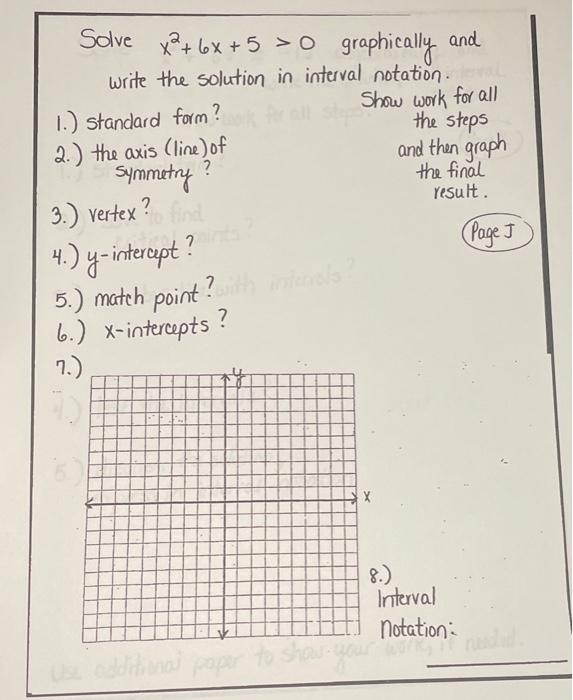 Solve x²+6x+5 >0 graphically and
write the solution in interval notation.
Show work for all
the steps
and then graph
the final
result.
Page J
1.) standard form?
2.) the axis (line) of
symmetry?
3.) vertex?
4.) y-intercept?
5.) match point?
6.) x-intercepts?
7.)
y
x
8.)
Interval
Notation:
Use additional paper to show your work, if needed.